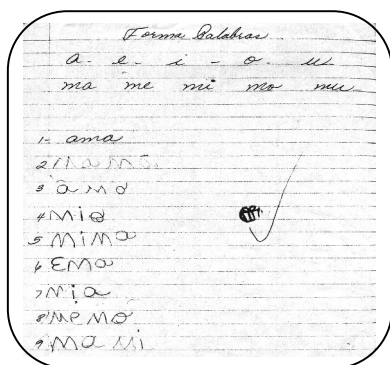 Forma Palabras
a - e - i - o - u
ma me mi mo mu
1- ama
2 mamá
3 amo
4 mio
5 mima
6 Ema
7 mia
8 memo
9 mami